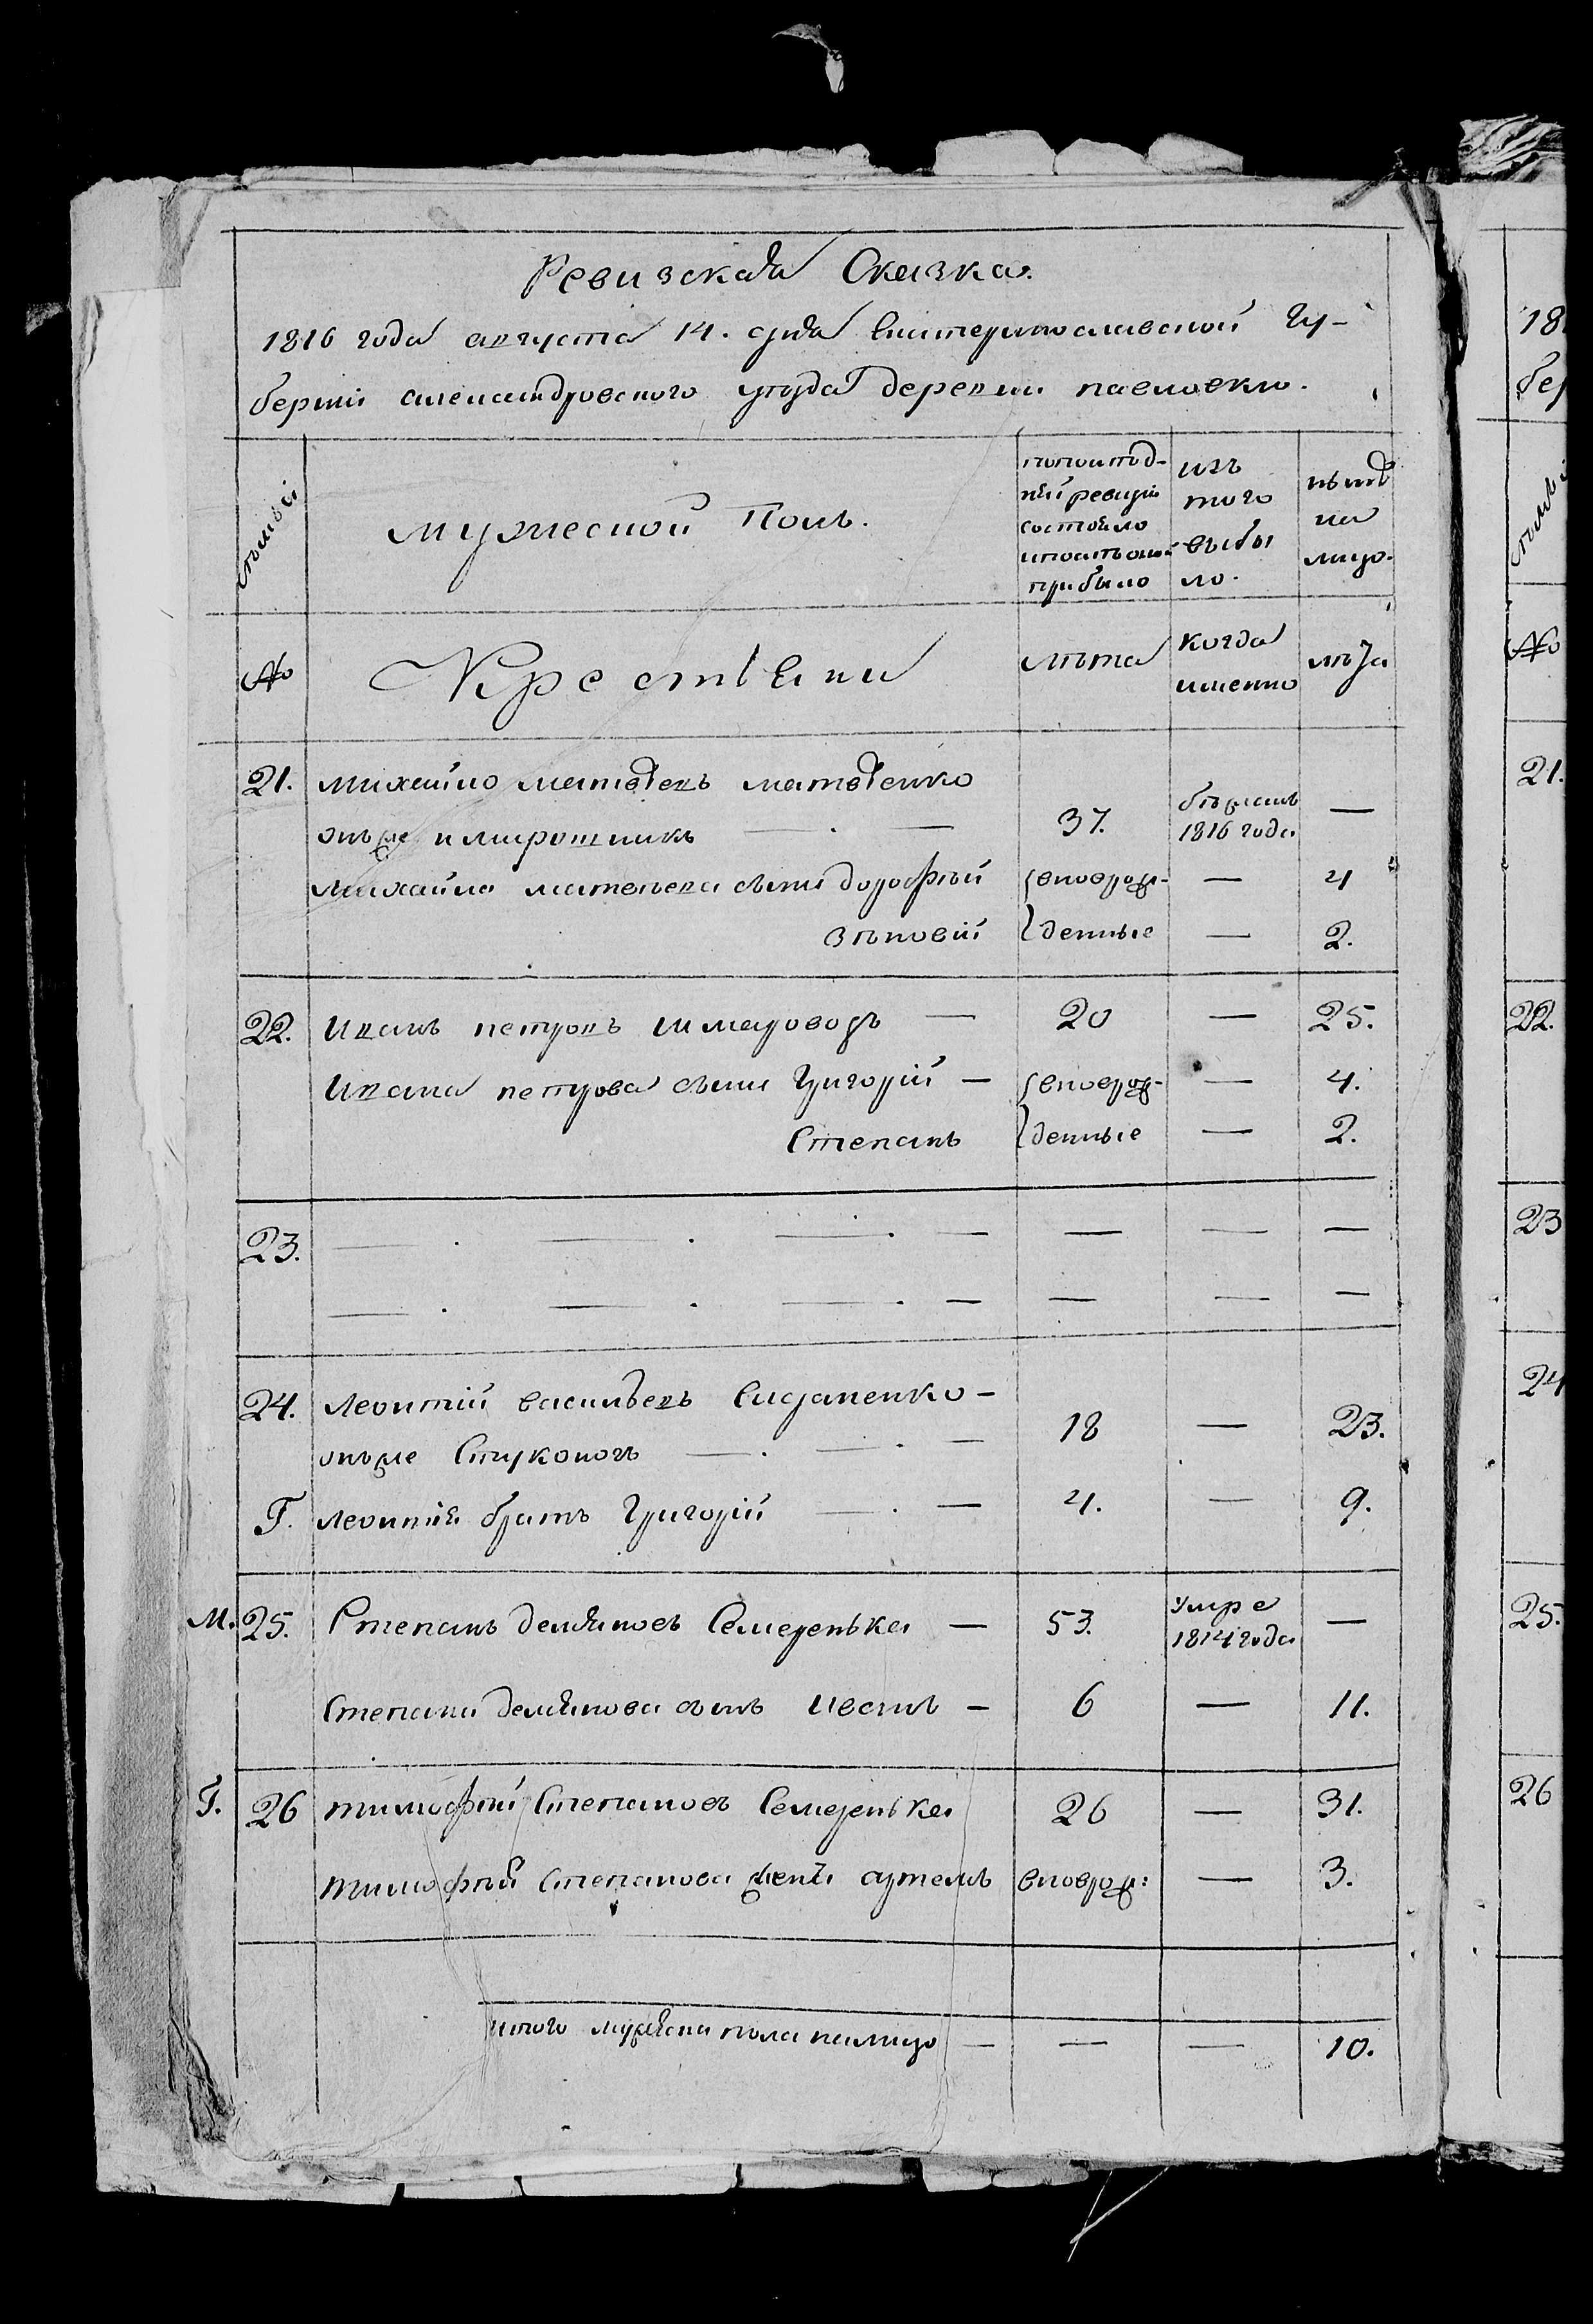 Ревизская Сказка.
1816 года августа 14. дня Екатеринославской Гу-
берніи александровского уезда деревни павловки.
мужеской Полъ.
попослѣд-
ней ревизіи
состояло
ипослѣ оной
прибыло
изъ
того
выбы
ло.
нынѣ
на
лицо.
семьи
№
Крестьяни
лѣта
когда
именно
лѣта
21. михайло матвѣевъ матвѣенко
онъже и мирошникъ — . — 37. бѣжалъ 1816 года —
михайла матвѣева сыни дорофѣй вновърож- — 4
зѣновій денные — 2.
22. иванъ петровъ шмаровозъ — 20 — 25.
ивана петрова сыни Григорій — вновърож- — 4.
Степанъ денные — 2.
23. — . — . — . — — — —
— . — . — . — — — —
24. леонтій васильевъ
онъже Стуконогъ — . — . — 18 — 23.
Г. леонтія братъ Григорій — . — 4. — 9.
М. 25. Степанъ демяновъ Семеренька — 53. умре 1814 года —
Степана демянова сынъ иванъ — 6 — 11.
Г. 26 тимофѣй Степановъ Семеренька 26 — 31.
тимофѣй Степанова артемъ вноврож: — 3.
итого мужеска пола налицо — — — 10.
18
бер
семьи
№
21.
22.
23
24
25.
26